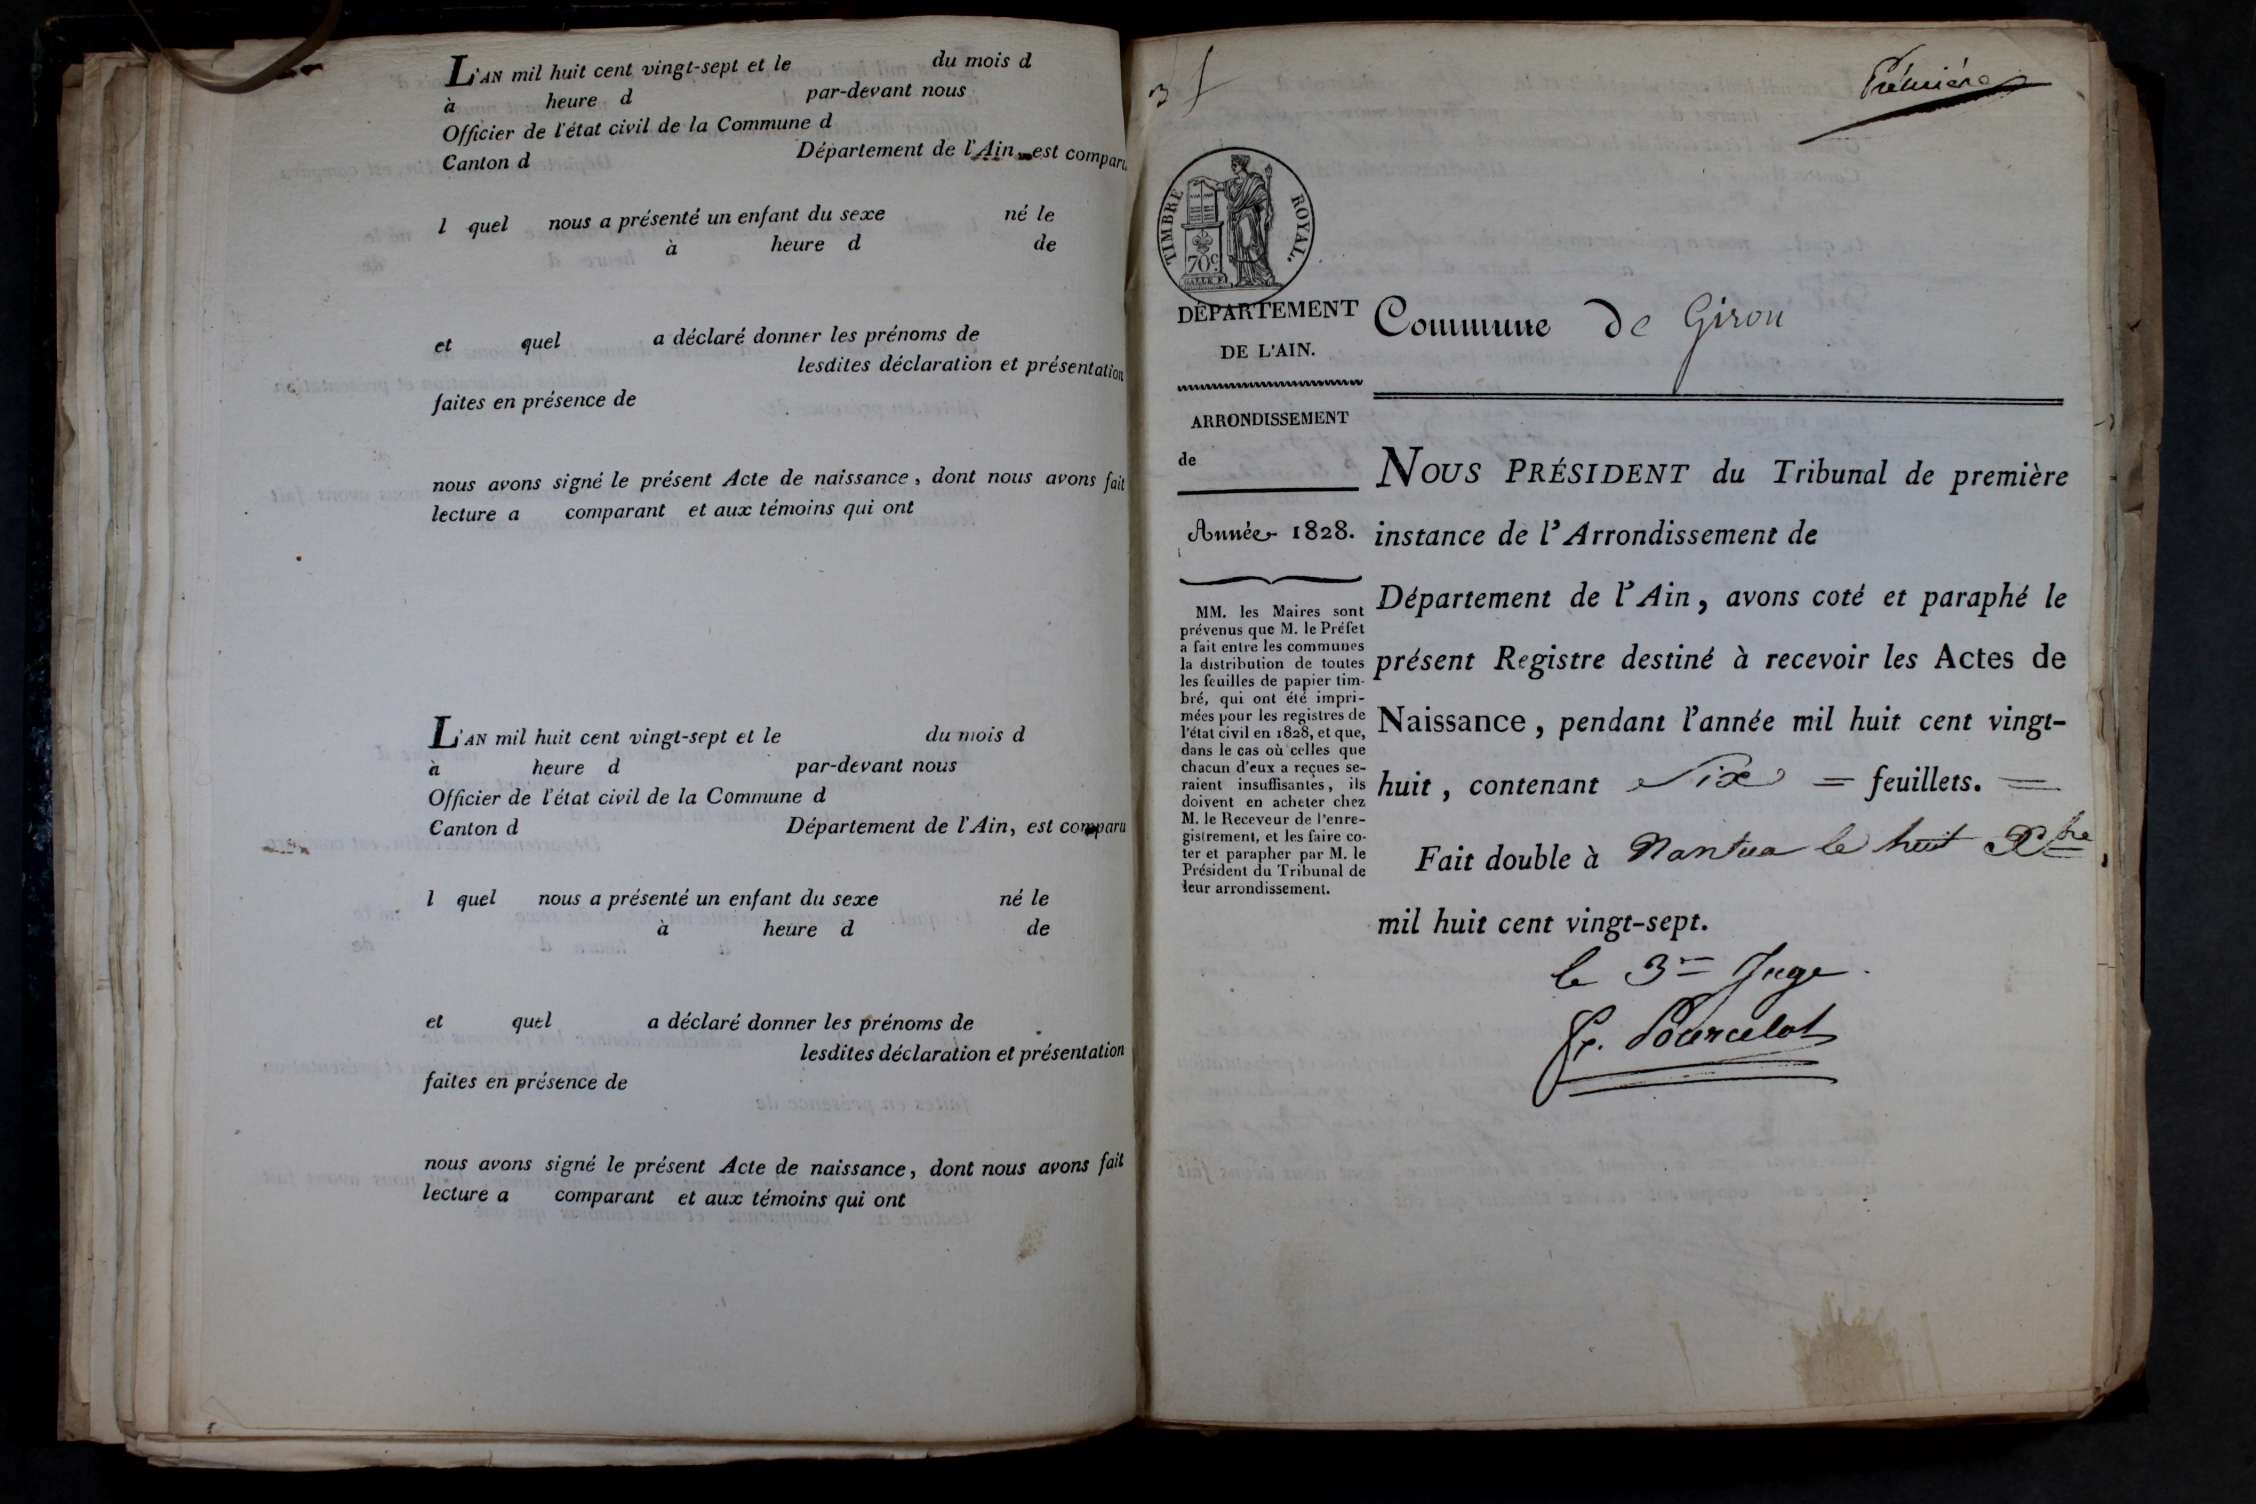 L'AN mil huit cent vingt-sept et le du mois d
à heure d par-devant nous
Officier de l'état civil de la Commune d
Canton d Département de l'Ain, est comparu
l quel nous a présenté un enfant du sexe né le
à heure d de
et quel a déclaré donner les prénoms de
lesdites déclaration et présentation
faites en présence de
nous avons signé le présent Acte de naissance, dont nous avons fait
lecture a comparant et aux témoins qui ont
L'AN mil huit cent vingt-sept et le du mois d
à heure d par-devant nous
Officier de l'état civil de la Commune d
Canton d Département de l'Ain, est comparu
l quel nous a présenté un enfant du sexe né le
à heure d de
et quel a déclaré donner les prénoms de
lesdites déclaration et présentation
faites en présence de
nous avons signé le présent Acte de naissance, dont nous avons fait
lecture a comparant et aux témoins qui ont
Première
TIMBRE ROYAL.
70c
DÉPARTEMENT
DE L'AIN.
ARRONDISSEMENT
de
Année 1828.
MM. les Maires sont
prévenus que M. le Préfet
a fait entre les communes
la distribution de toutes
les feuilles de papier tim-
bré, qui ont été impri-
mées pour les registres de
l'état civil en 1828, et que,
dans le cas où celles que
chacun d'eux a reçues se-
raient insuffisantes, ils
doivent en acheter chez
M. le Receveur de l'enre-
gistrement, et les faire co-
ter et parapher par M. le
Président du Tribunal de
leur arrondissement.
Commune de Giron
NOUS PRÉSIDENT du Tribunal de première
instance de l'Arrondissement de
Département de l'Ain, avons coté et paraphé le
présent Registre destiné à recevoir les Actes de
Naissance, pendant l'année mil huit cent vingt-
huit, contenant Six = feuillets. =
Fait double à Nantua le huit Xbre,
mil huit cent vingt-sept.
le 3me Juge
Pourcelot